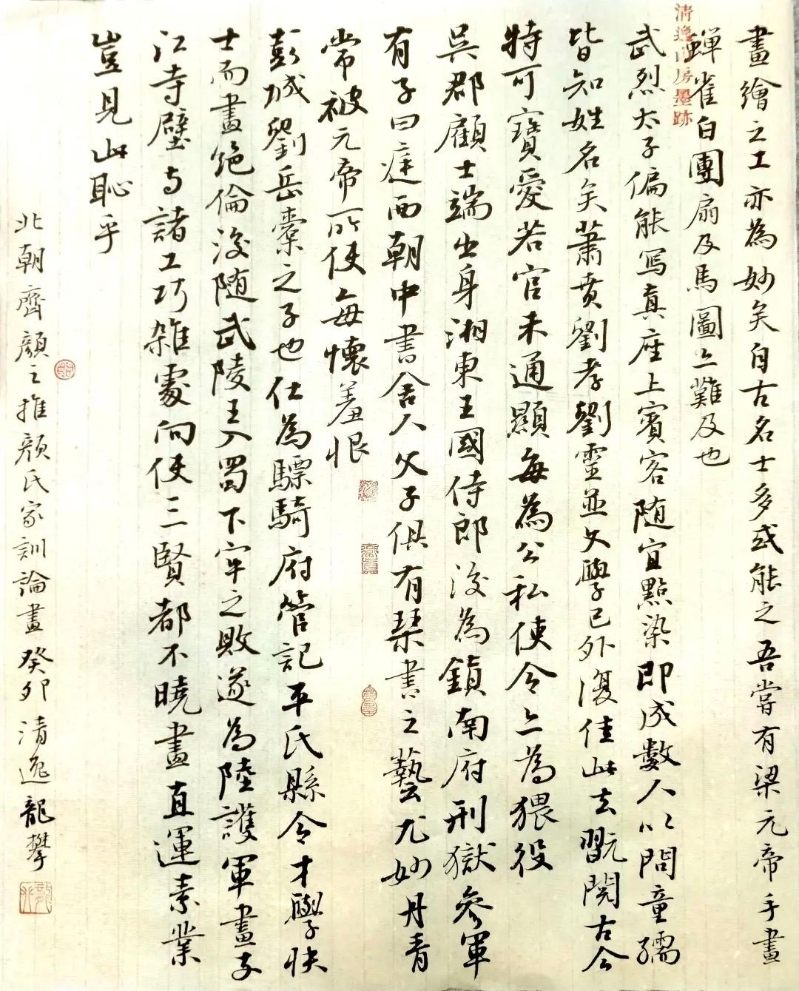 畫繪之工亦為妙矣自古名士多或能之吾嘗有梁元帝手畫
蟬雀白團扇及馬圖亦難及也
武烈太子偏能寫真座上賓客随宜點染即成數人以問童孺
皆知姓名矣蕭賁劉孝劉靈並文學已外復佳此去翫閱古今
特可寶愛若官未通顯每為公私使令亦為猥役
吳郡顧士端出身湘東王國侍郎後為鎮南府刑獄參軍
有子曰庭西朝中書舍人父子俱有琴書之藝尤妙丹青
常被元帝所使每懷羞恨
彭城劉岳橐之子也仕為驃騎府管記平氏縣令才學快
士而畫絕倫後随武陵王入蜀下牢之敗遂為陸護軍畫支
江寺壁与諸工巧雜處向使三賢都不曉畫直運素業
豈見此恥乎
北朝齊顏之推顏氏家訓論畫癸卯清逸龍攀
清逸山房墨跡